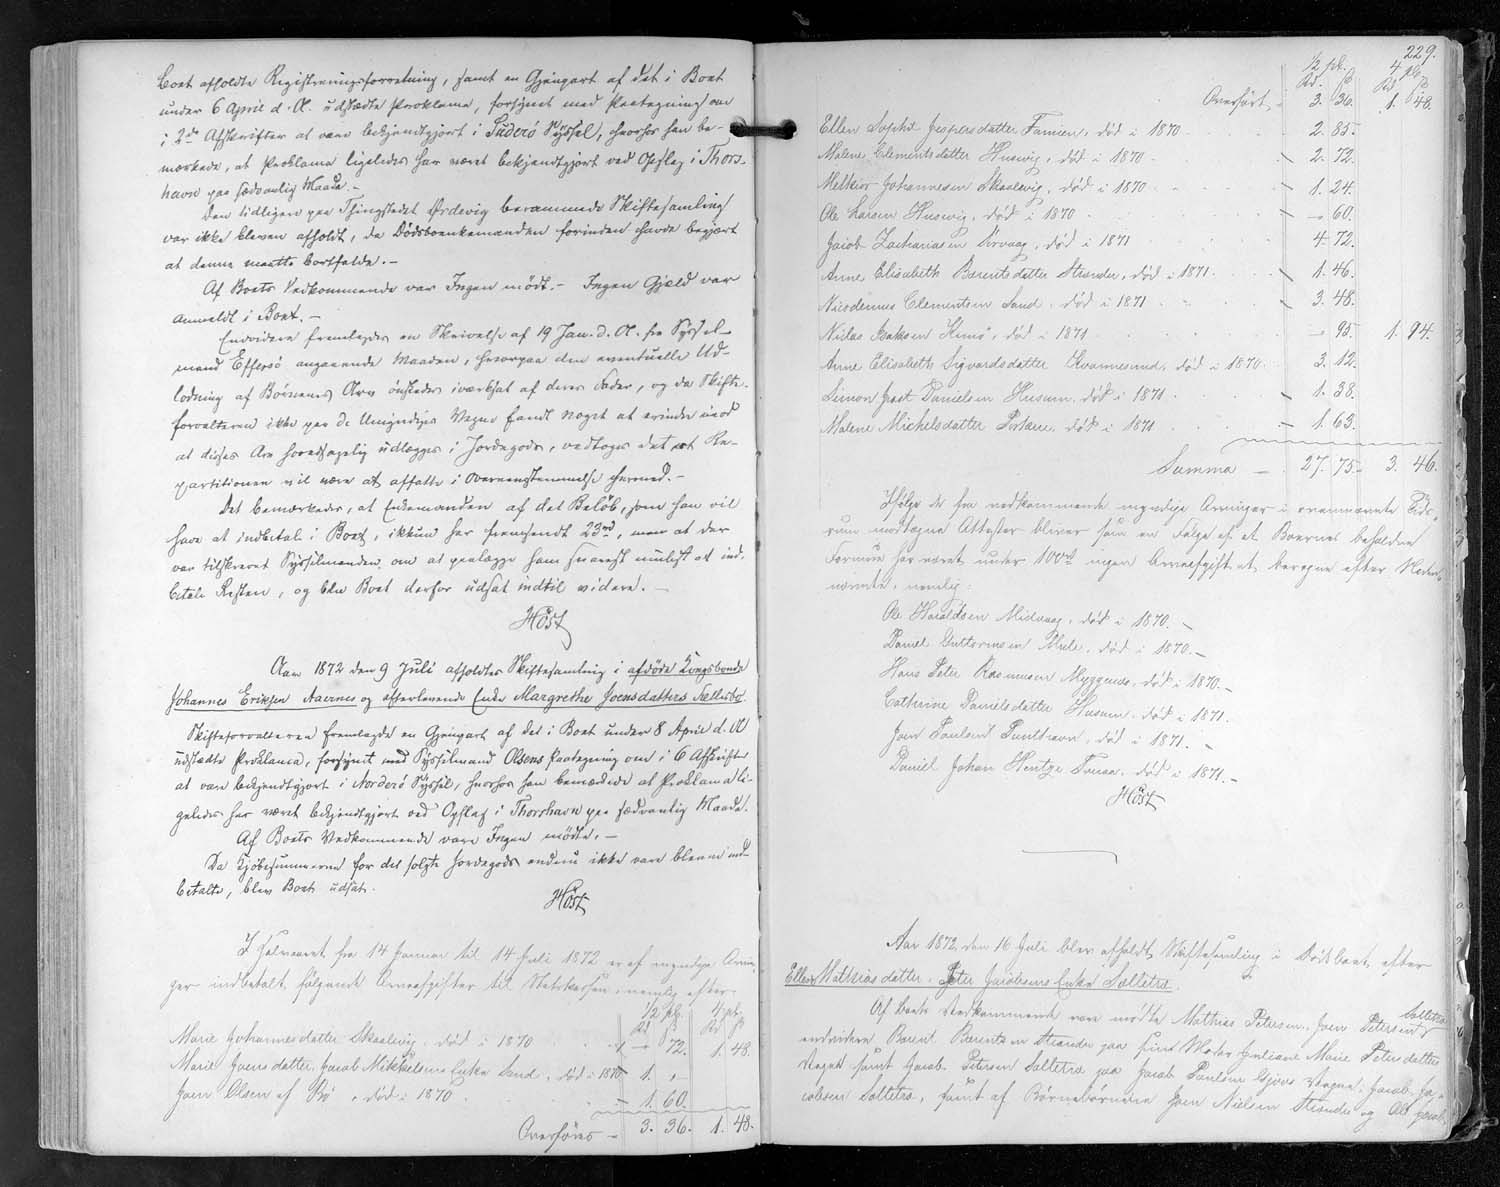 boet afholdte Registreringsforretning, samt en Gjenpart af det i Boet
under 6 April d. A. udstædte Proklama, forsynet med Paategning om
i 2de Afskrifter at være bekjendtgjort i Suderø Syssel, hvorhos han be-
mærkede, at Proklama ligeledes har været bekjendtgjort ved Opslag i Thors-
havn paa sædvanlig Maade.-
Den tidligere paa Thingstedet Ørdevig berammede Skiftesamling
var ikke bleven afholdt, da Dødsboenkemanden forinden havde begjært
at denne maatte bortfalde.-
Af Boets Vedkommende var Ingen mødt.- Ingen Gjæld var
anmeldt i Boet.-
Endvidere fremlagdes en Skrivelse af 19 Jan. d. A. fra Syssel-
mand Effersø angaaende Maaden, hvorpaa den eventuelle Ud-
lodning af Børnenes Arv ønskedes iværksat af deres Fader, og da Skifte-
forvalteren ikke paa de Umyndiges Vegne fandt noget at erindre imod
at disses Arv hovedsagelig udlægges i Jordegods, vedtoges det at Re-
partitionen vil være at affatte i Overensstemmelse hermed.-
Det bemærkedes, at Enkemanden af det Beløb, som han vil
have at indbetale i Boet, ikkun har fremsendt 23rd, men at der
var tilskrevet Sysselmanden om at paalægge ham snarest muligt at ind-
betale Resten, og blev Boet derfor udsat indtil videre.-
Høst
Aar 1872 den 9 Juli afholdtes Skiftesamling i afdøde Kongsbonde
Johannes Eriksen Aaernes og efterlevende Enke Margrethe Joensdatters Fællesbo.
Skifteforvalteren fremlagde en Gjenpart af det i Boet under 8 April d. A.
udstædte Proklama, forsynet med Sysselmand Olsens Paategning om i 6 Afskrifter
at være bekjendtgjort i Norderø Syssel, hvorhos han bemærkede at Proklama li-
geledes har været bekjendtgjort ved Opslag i Thorshavn paa sædvanlig Maade.
Af Boets Vedkommende vare Ingen mødte.-
Da Kjøbesummerne for det solgte Jordegods endnu ikke vare blevne ind-
betalte, blev Boet udsat.
Høst
I Halvaaret fra 14 Januar til 14 Juli 1872 er af myndige Arvin-
ger indbetalt følgende Arveafgifter til Statskassen, nemlig efter:
1/2 pCt. 4 pCt.
Rd ß Rd ß
Marie Johannesdatter Skaalevig, død i 1870 - 72. 1. 48.
Marie Joensdatter, Jacob Mikkelsens Enke Sand, død i 1870 - 1. „ -
Joen Olsen af Bø, død i 1870 - 1. 60.
Overføres - 3. 36. 1. 48.
229.
1/2 pCt. 4 pCt.
Rd. ß Rd ß
Overført - 3. 36. 1. 48.
Ellen Sophie Jespersdatter Famien, død i 1870 - 2. 85.
Malene Clementsdatter Husevig, død i 1870 - 2. 72.
Melkior Johannesen Skaalevig, død i 1870 - 1. 24.
Ole Larsen Husevig, død i 1870 - 60.
Jacob Zachariasen Sørvaag, død i 1871 4. 72.
Anne Elisabeth Barentsdatter Strender, død i 1871. - 1. 46.
Nicodemus Clementsen Sand, død i 1871 - 3. 48.
Niclas Isaksen Kunø, død i 1871 - 95. 1. 94.
Anne Elisabeth Sigvardsdatter Kvannesund, død i 1870 3. 12.
Simon Joost Danielsen Husum, død i 1871 - 1. 38.
Malene Michelsdatter Porkere, død i 1871 - 1. 63.
Summa - 27. 75. 3. 46.
Ifølge de fra vedkommende myndige Arvinger i ovennævnte Tids-
rum modtagne Attester bliver som en Følge af at Boernes beholdne
Formue har været under 100rd ingen Arveafgift at beregne efter Neden-
nævnte, nemlig:
Ole Haraldsen Midvaag, død i 1870.-
Daniel Guttormsen Mule, død i 1870.-
Hans Peter Rasmussen Myggenæs, død i 1870.-
Cathrine Danielsdatter Husum, død i 1871.
Joen Poulsen Funding, død i 1871.-
Daniel Johan Hentze Furen, død i 1871.-
Høst
Aar 1872 den 16 Juli blev afholdt Skiftesamling i Dødsboet efter
Ellen Mathiasdatter, Peter Jacobsens Enke Saltetræ.
Af Boets Vedkommende vare mødte Mathias Petersen, Joen Petersen Saltetræ
endvidere Barent Barentsen Strender paa sin Moder Juliane Marie Petersdatters
Vegne samt Jacob Petersen Saltetræ paa Jacob Poulsen Gjoves Vegne, Jacob Ja-
cobsen Saltetræ, samt af Børnebørnene Joen Nielsen Strender og Ole Jacob